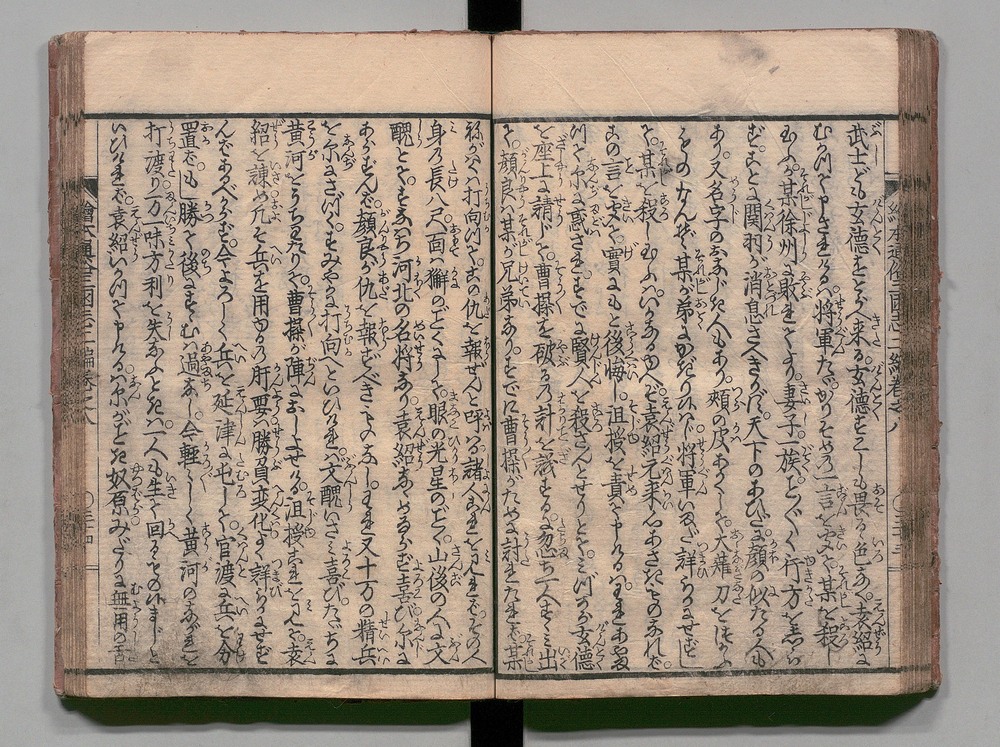 武士ども玄徳をとらへ来る玄徳すこしも畏るゝ色なく袁紹に
むかつて申されけるは将軍たゞかりそめの一言を以て某を殺し
給ふか某徐州に敗れてより妻子一族ことごとく行方をしら
ずことに関羽が消息さへきかず天下のあひだ顔の似たる人も
あり又名字のおなじき人もあり頬の皮あかくして大薙刀をつかふ
ものなんぞ某が弟にかぎり候はん将軍いまだ詳らかにせずし
て某を殺し給ふはいかなるゆへぞ袁紹元来心あさはかものなれば
この言を聞て実にもと後悔し沮授を責て申けるはわれあやま
つて汝に惑されすでに賢人を殺さんとせりとてみづから玄徳
を座上に請じて曹操を破るの計を議する忽ち一人すゝみ出
て顔良は某が兄弟なりすでに曹操がために討れたれば某
ねがはくは打向つてこの仇を報ぜんと呼る諸人これを見ればその人
身の長八尺面は獬のごとくにして眼の光星のごとし山後の人文
醜とてすなはち河北の名将なり袁紹なのめならず喜び汝に
あらずんば顔良が仇を報ずべきものなしわれ又十万の精兵
を汝にさづくすみやかに打向へといひければ文醜いさみ喜びたゞちに
黄河をうちわたりて曹操が陣におしよせける沮授これを見て袁
紹を諫め凡そ兵を用ゆるの肝要は勝負変化よく詳らかにせず
んばあるべからず今よろしく兵を延津に屯して官渡に兵を分
置ばもし勝て後にすゝむ過なし今軽々しく黄河のながれを
打渡り万一味方利を失なふときは一人も生て回るものはましと
いひければ袁紹いかつて申けるは汝がごとき奴原みだりに無用の舌